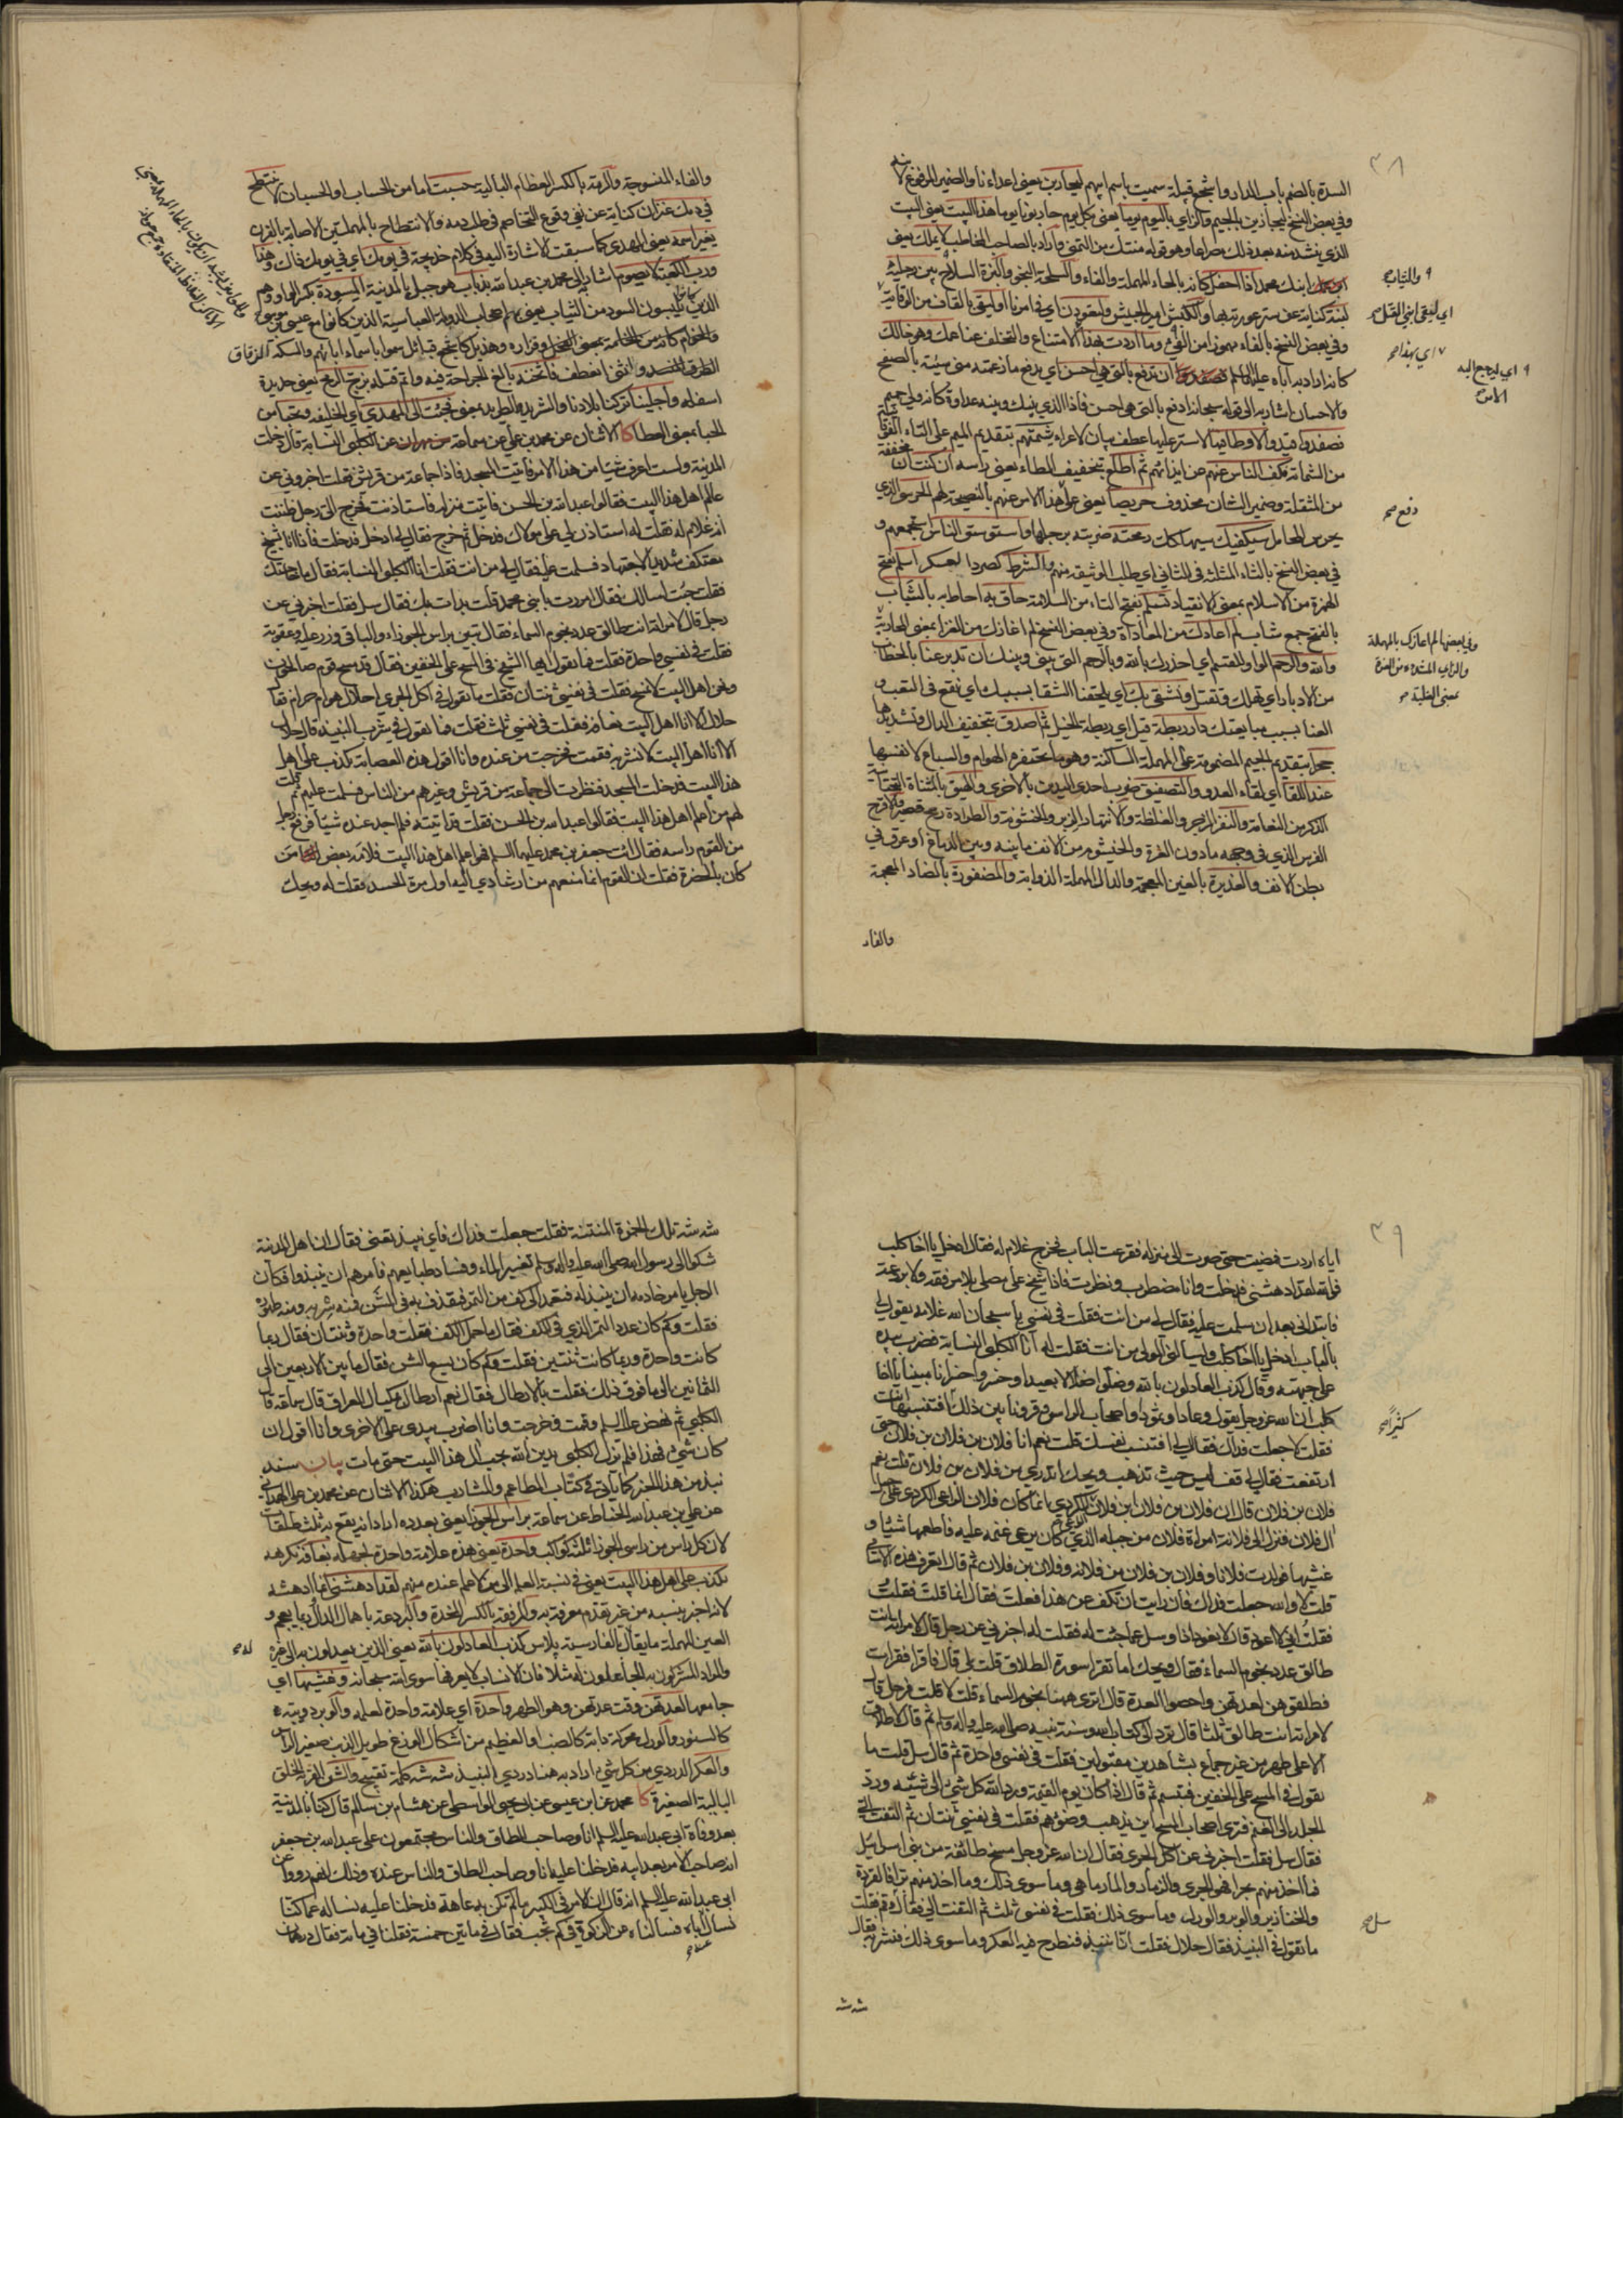 ٣٨
السدة بالضم باب الدار واشجع قبيلة سميت باسم ابيهم ليحاربن يعني اعداءنا والضمير المرفوع لا
وفي بعض النسخ ليجازين بالجيم والزاي باليوم يوما يعني بكل يوم حاربونا يوما هذا البيت يعني البيت
الذي ننشد منه بعد ذلك مصراعا وهو قوله منتك من التمني واراد بالصاحب المخاطب لا يملك يعني
ابنك محمد اذا احتفل كانه بالحاء المهملة والفاء والسلحة النجو والبزة السلاح بين رجليه
لبنة كناية عن ستر عورته بها والكبش امير الجيش ولتعودن اي في امرنا او ليقي بالقاف من الوقاية
وفي بعض النسخ بالفاء مهموزا من الفيء وما اردت بهذا الامتناع والتخلف عنا عمك وهو خالك
كانه اراد به اباه عليه السلم ان تدفع بالتي هي احسن اي يدفع ما زعمته مني سيئة بالصفح
والاحسان اشار به الى قوله سبحانه ادفع بالتي هي احسن فاذا الذي بينك وبينه عداوة كانه ولي حميم
من الشماتة نكف الناس عنهم عن ايذائهم ثم اطلع بتخفيف الطاء يعني راسه ان كنت
من المثقلة وضمير الشان محذوف حريصا يعني على هذا الامر عنهم بالنصيحة لهم الحرسي الذي
يحرس المحامل سيكفيك سيهلكك رمحته ضربته برجلها واستوسق الناس استجمعهم و
في بعض النسخ بالثاء المثلثة في الثاني اي طلب الوثيقة منهم والشرط كصرد العسكر اسلم بفتح
الهمزة من الاسلام بمعنى الانقياد تسلم بفتح التاء من السلامة حاق به احاط به بالشباب
بالفتح جمع شاب لم اعادك من المعاداة وفي بعض النسخ لم اغازك من الغزا بمعنى المحاربة
والله والرحم الواو للقسم اي احذرك بالله وبالرحم التي بيني وبينك ان تدبر عنا بالخطاب
من الادبار اي تهلك وتقتل ونشقى بك اي يلحقنا الشقا بسببك اي نقع في التعب و
العنا بسبب مبايعتك دار ريطة قيل اي ريطة الخيل ثم اصدق بتخفيف الدال وتشديدها
جحر بتقديم الجيم المضمومة على المهملة الساكنة وهو ما تحتفره الهوام والسباع لانفسها
عند اللقا اي لقاء العدو والتصفيق ضرب احدى اليدين بالاخرى والهيق بالمثناة التحتانية
الذكر من النعامة والنفر الزجر والغلظة والانتهار الزبر والخشونة والطرادة رمح قصير والاقرح
الفرس الذي في وجهه ما دون الغرة والخيشوم من الانف ما بينه وبين الدماغ او عرق في
بطن الانف والغديرة بالغين المعجمة والدال المهملة الذوابة والمضفورة بالضاد المعجمة
والفاء
والثياب
اي ليقي ابني القتل صح
اي بهذا صح
اي ليرجع اليه
الامر
دفع صح
وفي بعضها لم اعازك بالمهملة
والزاي المشددة من العزة
بمعنى الغلبة صح
والفاء المنسوجة والرمة بالكسر العظام البالية حسبت اما من الحساب او الحسبان لا تنتطح
في دمك عنزان كناية عن نفي وقوع التخاصم في طلب دمه والانتطاح بالمهملتين الاصابة بالقرن
يغير اسمه يعني المهدي كما سبقت الاشارة اليه في كلام خديجة في يومك اي في يومك ذاك وهذا
ورب الكعبة لا يصوم اشار به الى محمد بن عبد الله بذباب هو جبل بالمدينة المسودة بكسر الواو وهم
الذين يلبسون السود من الثياب يعني بهم اصحاب الدولة العباسية الذين كانوا مع عيسى بن موسى
والخوام كانه من الخامة بمعنى الفجل وفزاره وهذيل كاشجع قبائل سموا باسماء ابائهم والسكة الزقاق
انثنى انعطف فاثخنه بالغ الجراحة فيه والزج زج الرمح يعني حديدة
اسفله واجلينا تركنا بلادنا والشريد الطريد بمعنى فجئت الى المهدي اي الخليفة ونحبا من
الحبا بمعنى العطا كا الاثنان عن محمد بن علي عن سماعة عن الكلبي النسابة قال دخلت
المدينة ولست اعرف شيئا من هذا الامر فاتيت المسجد فاذا جماعة من قريش فقلت اخبروني عن
عالم اهل هذا البيت فقالوا عبد الله بن الحسن فاتيت منزله فاستاذنت فخرج الي رجل ظننت
انه غلام له فقلت له استاذن لي على مولاك فدخل ثم خرج فقال لي ادخل فدخلت فاذا انا بشيخ
معتكف شديد الاجتهاد فسلمت عليه فقال لي من انت فقلت انا الكلبي النسابة فقال ما حاجتك
فقلت جئت اسالك فقال امررت بابني محمد قلت بدات بك فقال سل فقلت اخبرني عن
رجل قال لامراته انت طالق عدد نجوم السماء فقال تبين براس الجوزاء والباقي وزر عليه وعقوبة
فقلت في نفسي واحدة فقلت فما يقول ايها الشيخ في المسح على الخفين فقال قد مسح قوم صالحون
ونحن اهل البيت لا نمسح فقلت في نفسي ثنتان فقلت ما تقول في اكل الجري احلال هو ام حرام فقا
حلال الا انا اهل البيت نعافه فقلت في نفسي ثلث فقلت فما تقول في شرب النبيذ قال حلال
الا انا اهل البيت لا نشربه فقمت فخرجت من عنده وانا اقول هذه العصابة تكذب على اهل
هذا البيت فدخلت المسجد فنظرت الى جماعة من قريش وغيرهم من الناس فسلمت عليهم ثم قلت
لهم من اعلم اهل هذا البيت فقالوا عبد الله بن الحسن فقلت قد اتيته فلم اجد عنده شيئا فرفع رجل
من القوم راسه فقال ائت جعفر بن محمد عليهما السلم فهو اعلم اهل هذا البيت فلامه بعض من
كان بالحضرة فقلت ان القوم انما منعهم من ارشادي اليه اول مرة الحسد فقلت له ويحك
٣٩
اياه اردت فمضيت حتى صرت الى منزله فقرعت الباب فخرج غلام له فقال ادخل يا اخا كلب
فوالله لقد ادهشني فدخلت وانا مضطرب ونظرت فاذا شيخ على مصلى بلا مرفقة ولا بردعة
فابتداني بعد ان سلمت عليه فقال لي من انت فقلت في نفسي يا سبحان الله غلامه يقول لي
بالباب ادخل يا اخا كلب ويسالني المولى من انت فقلت له انا الكلبي النسابة فضرب بيده
على جبهته وقال كذب العادلون بالله وضلوا ضلالا بعيدا وخسروا خسرانا مبينا يا اخا
كلب ان الله عز وجل يقول وعادا وثمود او اصحاب الرس وقرونا بين ذلك افتنسبها انت
فقلت لا جعلت فداك فقال لي افتنسب نفسك قلت نعم انا فلان بن فلان بن فلان حتى
ارتفعت فقال لي قف ليس حيث تذهب ويحك اتدري من فلان بن فلان قلت نعم
فلان بن فلان قال ان فلان بن فلان ابن فلان الكردي انما كان فلان الراعي الكردي على جبل
ال فلان فنزل الى فلانة امراة فلان من جبله الذي كان يرعى غنمه عليه فاطعمها شيئا و
غشيها فولدت فلانا وفلان بن فلان من فلانة وفلان بن فلان ثم قال اتعرف هذه الاسامي
قلت لا والله جعلت فداك فان رايت ان تكف عن هذا فعلت فقال انما قلت فقلت
فقلت اني لا اعود قال لا نعود اذا وسل عما جئت له فقلت له اخبرني عن رجل قال لامراته انت
طالق عدد نجوم السماء فقال ويحك اما تقرا سورة الطلاق قلت بلى قال فاقرا فقرات
فطلقوهن لعدتهن واحصوا العدة قال اترى ههنا نجوم السماء قلت لا قلت فرجل قال
لامراته انت طالق ثلثا قال ترد الى كتاب الله وسنة نبيه صلى الله عليه واله وسلم ثم قال لا طلاق
الا على طهر من غير جماع بشاهدين مقبولين فقلت في نفسي واحدة ثم قال سل قلت ما
تقول في المسح على الخفين فتبسم ثم قال اذا كان يوم القيمة ورد الله كل شيء الى شيئه ورد
الجلد الى الغنم فترى اصحاب المسح اين يذهب وضوئهم فقلت في نفسي ثنتان ثم التفت الي
فقال سل فقلت اخبرني عن اكل الجري فقال ان الله عز وجل مسخ طائفة من بني اسرائيل
فما اخذ منهم بحرا فهو الجري والزمار والمارماهي وما سوى ذلك وما اخذ منهم برا فالقردة
والخنازير والوبر والورل وما سوى ذلك فقلت في نفسي ثلث ثم التفت الي فقال وقم فقلت
ما تقول في النبيذ فقال حلال فقلت انا ننبذ فنطرح فيه العكر وما سوى ذلك فنشربه فقال
شه شه
كثيرا صح
سل صح
شه شه تلك الخمرة المنتنة فقلت جعلت فداك فاي نبيذ تعني فقال ان اهل المدينة
شكوا الى رسول الله صلى الله عليه واله وسلم تغيير الماء وفساد طبايعهم فامرهم ان ينبذوا فكان
الرجل يامر خادمه ان ينبذ له فيعمد الى كف من التمر فيقذف به في الشن فمنه شربه ومنه طهوره
فقلت وكم كان عدد التمر الذي في الكف فقال ما حمل الكف فقلت واحدة وثنتان فقال ربما
كانت واحدة وربما كانت ثنتين فقلت وكم كان يسع الشن فقال ما بين الاربعين الى
الثمانين الى ما فوق ذلك فقلت بالارطال فقال نعم ارطال بمكيال العراق قال سماعة قال
الكلبي ثم نهض عليه السلم وقمت فخرجت وانا اضرب بيدي على الاخرى وانا اقول ان
كان شيء فهذا فلم يزل الكلبي يدين الله بحب ال هذا البيت حتى مات بيان سند
نبذ من هذا الخبر كما ياتي في كتاب المطاعم والمشارب هكذا الاثنان عن محمد بن علي الهمداني
عن علي بن عبد الله الخياط عن سماعة براس الجوزا يعني بعدده اراد انه يقع به ثلث طلقات
لان كل راس من راسي الجوزا ثلثة كواكب واحدة يعني هذه علامة واحدة لجهله نعافه نكرهه
تكذب على اهل هذا البيت يعني في نسبة العلم الى من لا علم عنده منهم لقد ادهشني انما ادهشه
لانه اخبر بنسبه من غير تقدم معرفة به والمرفقة بالكسر المخدة والبردعة باهمال الدال وربما يعجم و
العين المهملة ما يقال بالفارسية پلاس كذب العادلون بالله يعني الذين يعدلون به الى غيره
والمراد المشركون به الجاعلون له مثلا فان الانساب لا يعرفها سوى الله سبحانه وغشيها اي
جامعها لعدتهن وقت عدتهن وهو الطهر واحدة اي علامة واحدة لعلمه والوبر دويبة
كالسنور والورل محركة دابة كالضب او العظيم من اشكال الوزغ طويل الذنب صغير الراس
والعكر الدردي من كل شيء اراد به هنا دردي النبيذ شه شه كلمة تقبيح والشن القربة الخلق
البالية الصغيرة كا محمد عن ابن عيسى عن ابي يحيى الواسطي عن هشام بن سالم قال كنا بالمدينة
بعد وفاة ابي عبد الله عليه السلم انا وصاحب الطاق والناس مجتمعون على عبد الله بن جعفر
انه صاحب الامر بعد ابيه فدخلنا عليه انا وصاحب الطاق والناس عنده وذلك انهم رووا عن
ابي عبد الله عليه السلم انه قال ان الامر في الكبير ما لم تكن به عاهة فدخلنا عليه نساله عما كنا
نسال اباه فسالناه عن الزكوة في كم تجب فقال في مايتين خمسة فقلنا في مائة فقال درهمان
عنه صح
له صح